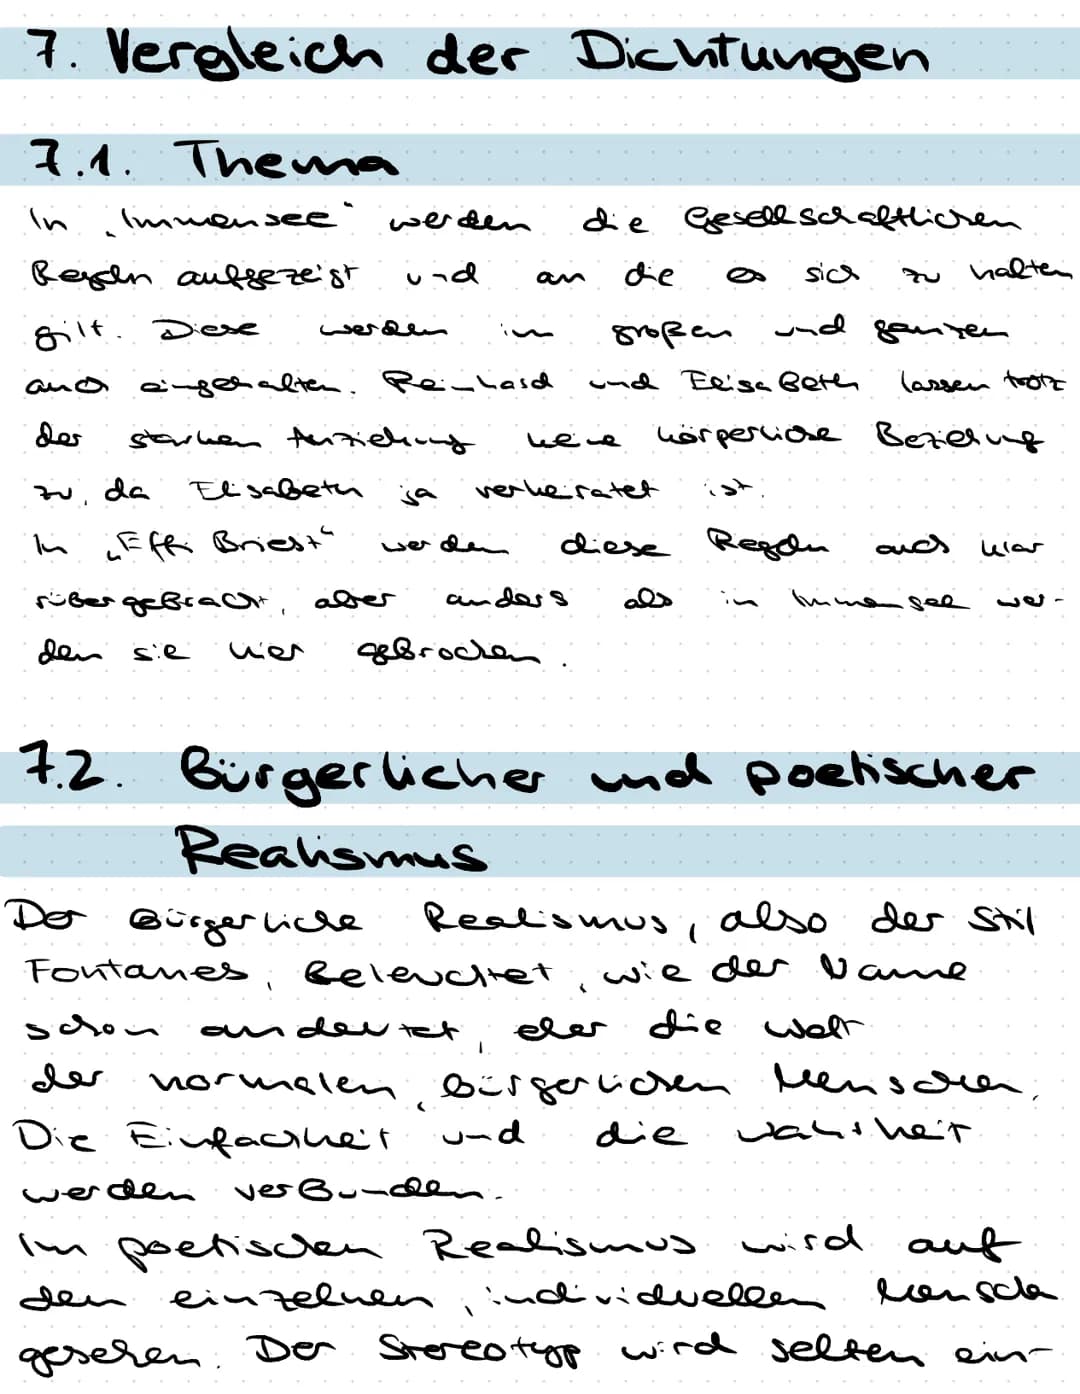 7. Vergleich der Dichtungen
7.1. Thema
In „Immensee“ werden die Gesellschaftlichen
Regeln aufgezeigt und an die es sich zu halten
gilt. Diese werden im großen und ganzen
auch eingehalten. Reinhard und Elisabeth lassen trotz
der starken Anziehung keine körperliche Beziehung
zu, da Elisabeth ja verheiratet ist.
In „Effi Briest“ werden diese Regeln auch klar
rübergebracht, aber anders als in Immensee wer-
den sie hier gebrochen.
7.2. Bürgerlicher und poetischer
Realismus
Der Bürgerliche Realismus, also der Stil
Fontanes, beleuchtet, wie der Name
schon andeutet, eher die Welt
der normalen, bürgerlichen Menschen.
Die Einfachheit und die Wahrheit
werden verbunden.
Im poetischen Realismus wird auf
den einzelnen, individuellen Mensche
gesehen. Der Stereotyp wird selten ein-